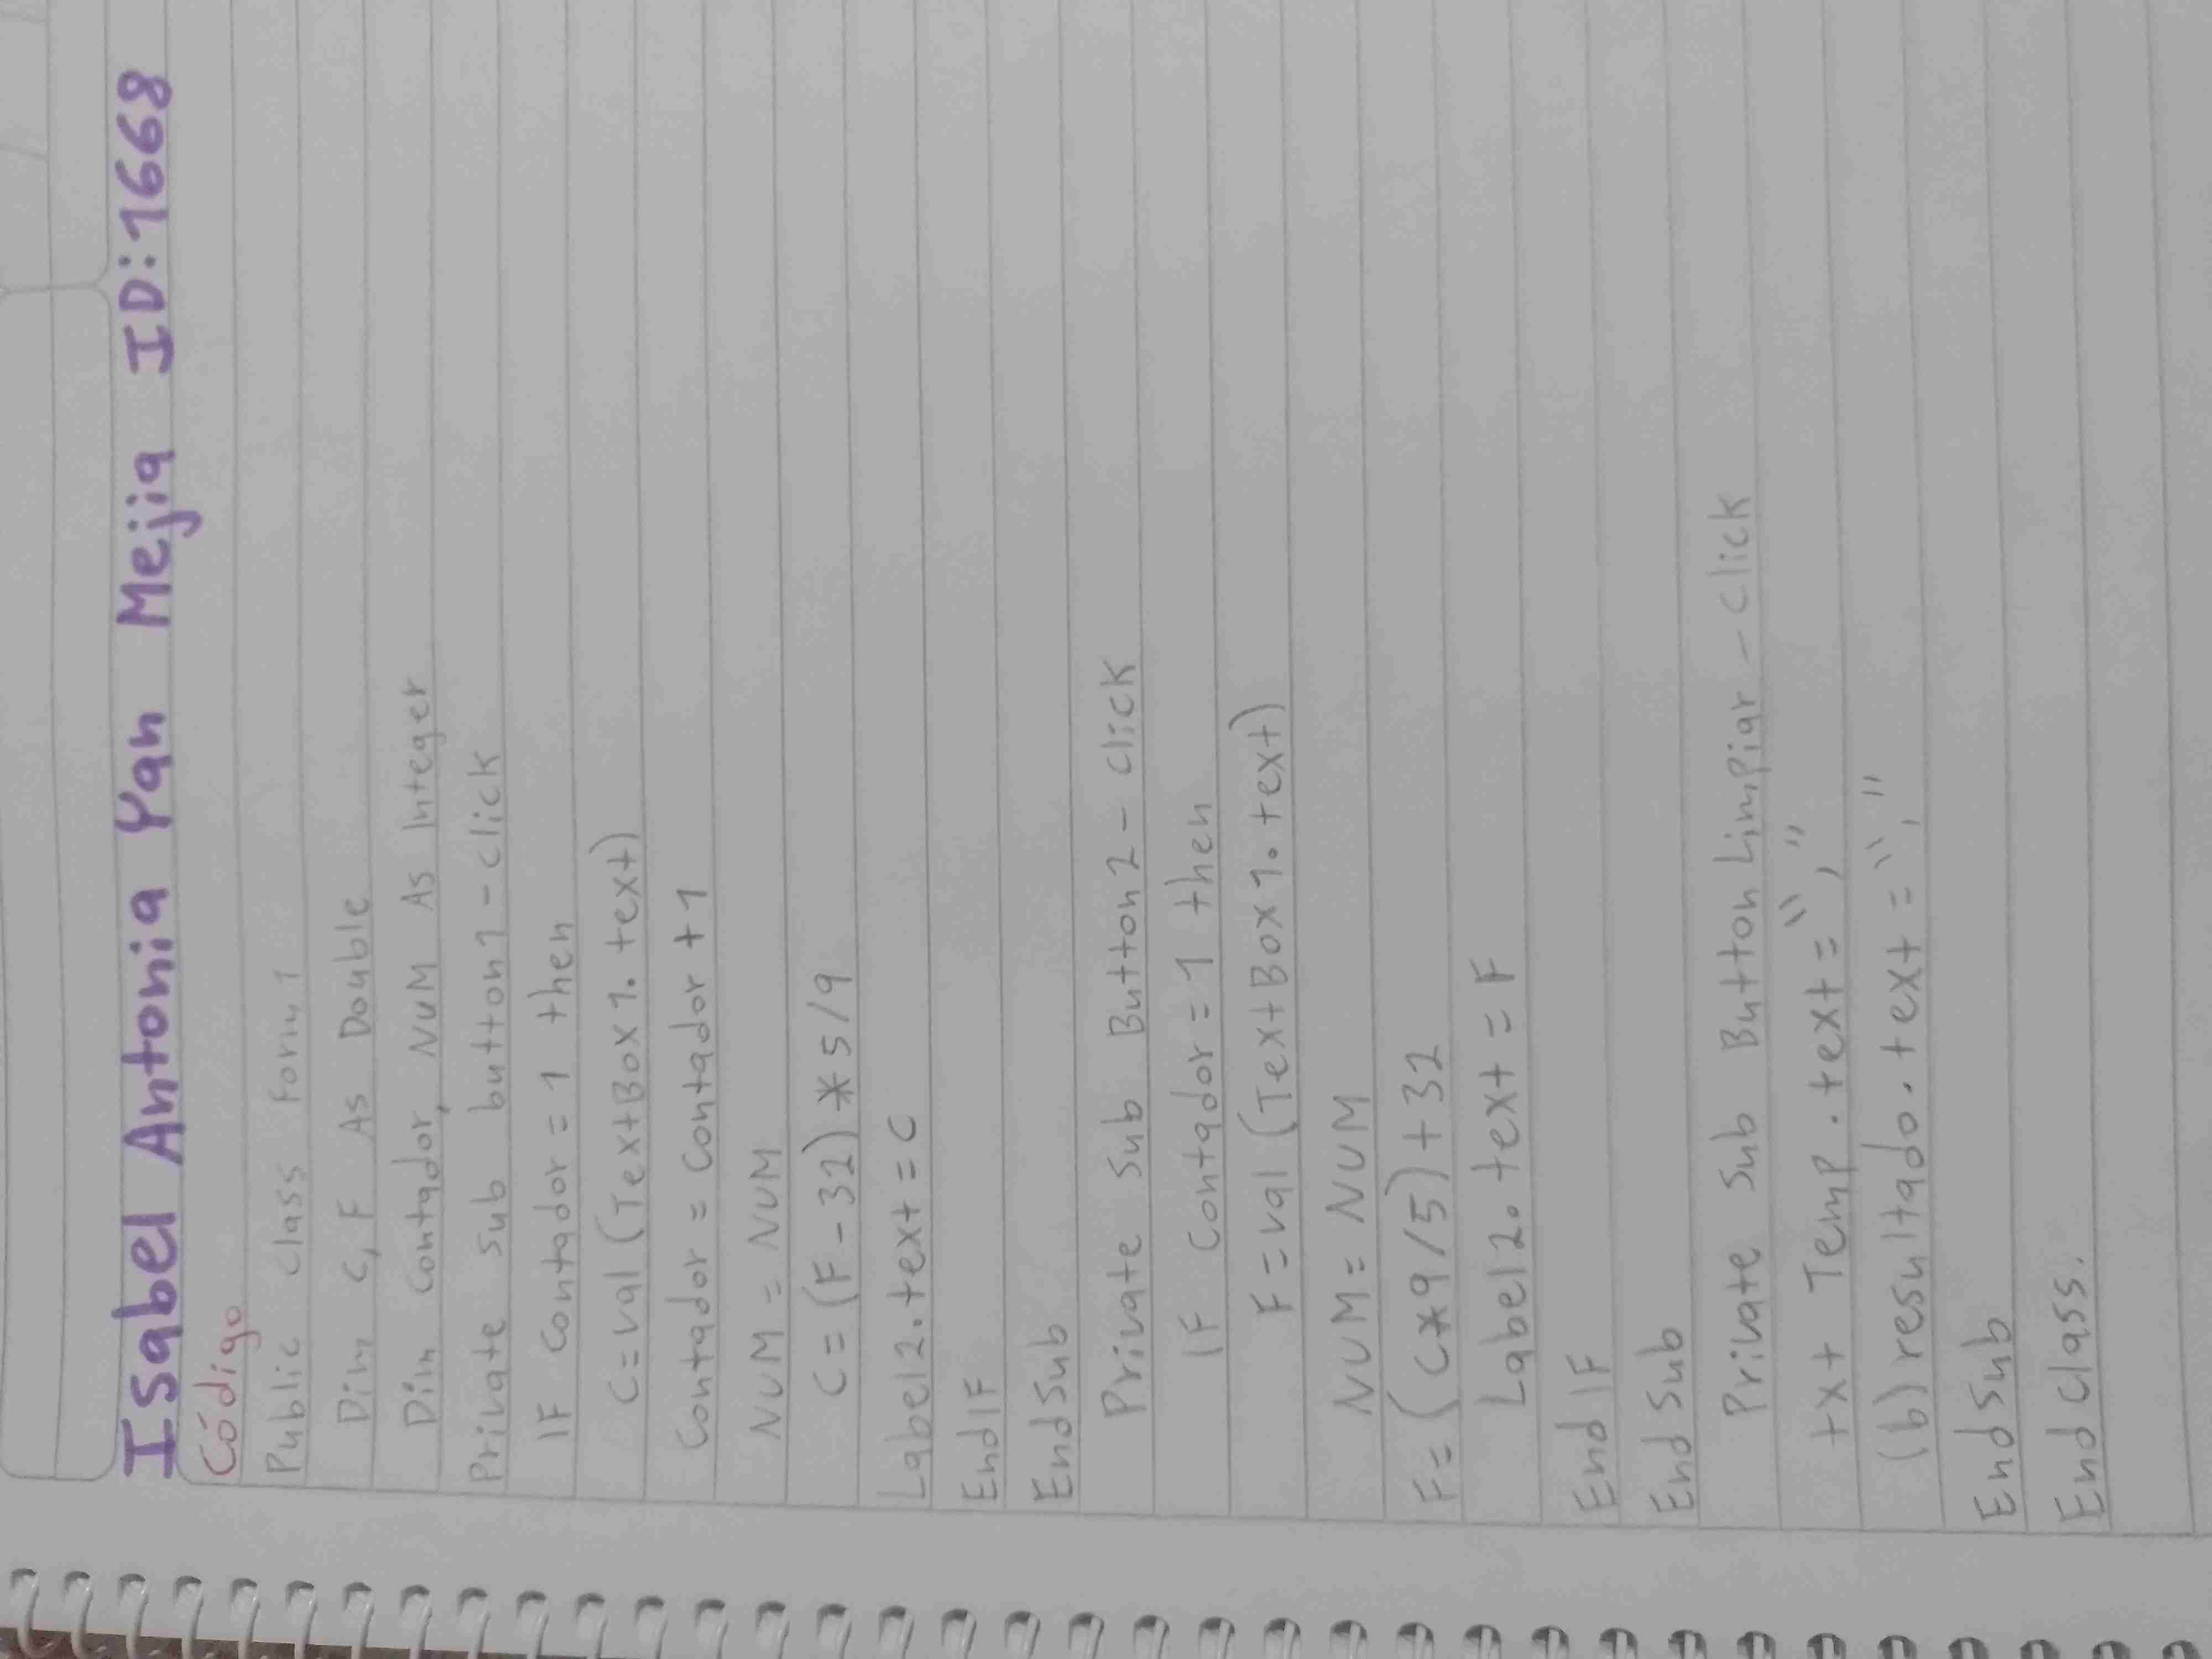 Isabel Antonia Yan Mejia ID:1668
Código
Public class Form1
Dim C, F As Double
Dim Contador, NUM As Integer
Private Sub button1-click
IF Contador = 1 then
C=val (TextBox1.text)
Contador = Contador +1
NUM = NUM
C=(F-32)*5/9
Label2.text=C
EndIF
EndSub
Private Sub Button2-click
IF Contador=1 then
F=val (TextBox1.text)
NUM= NUM
F=(C*9/5)+32
Label2.text=F
EndIF
EndSub
Private Sub ButtonLimpiar-click
txt Temp.text=","
(b)resultado.text=","
EndSub
EndClass.